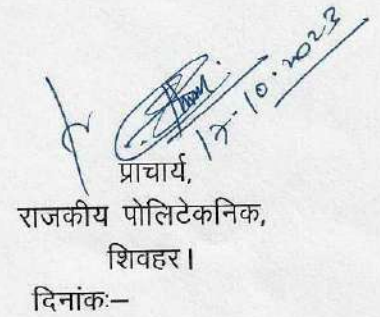 17.10.2023
प्राचार्य,
राजकीय पोलिटेकनिक,
शिवहर।
दिनांकः–